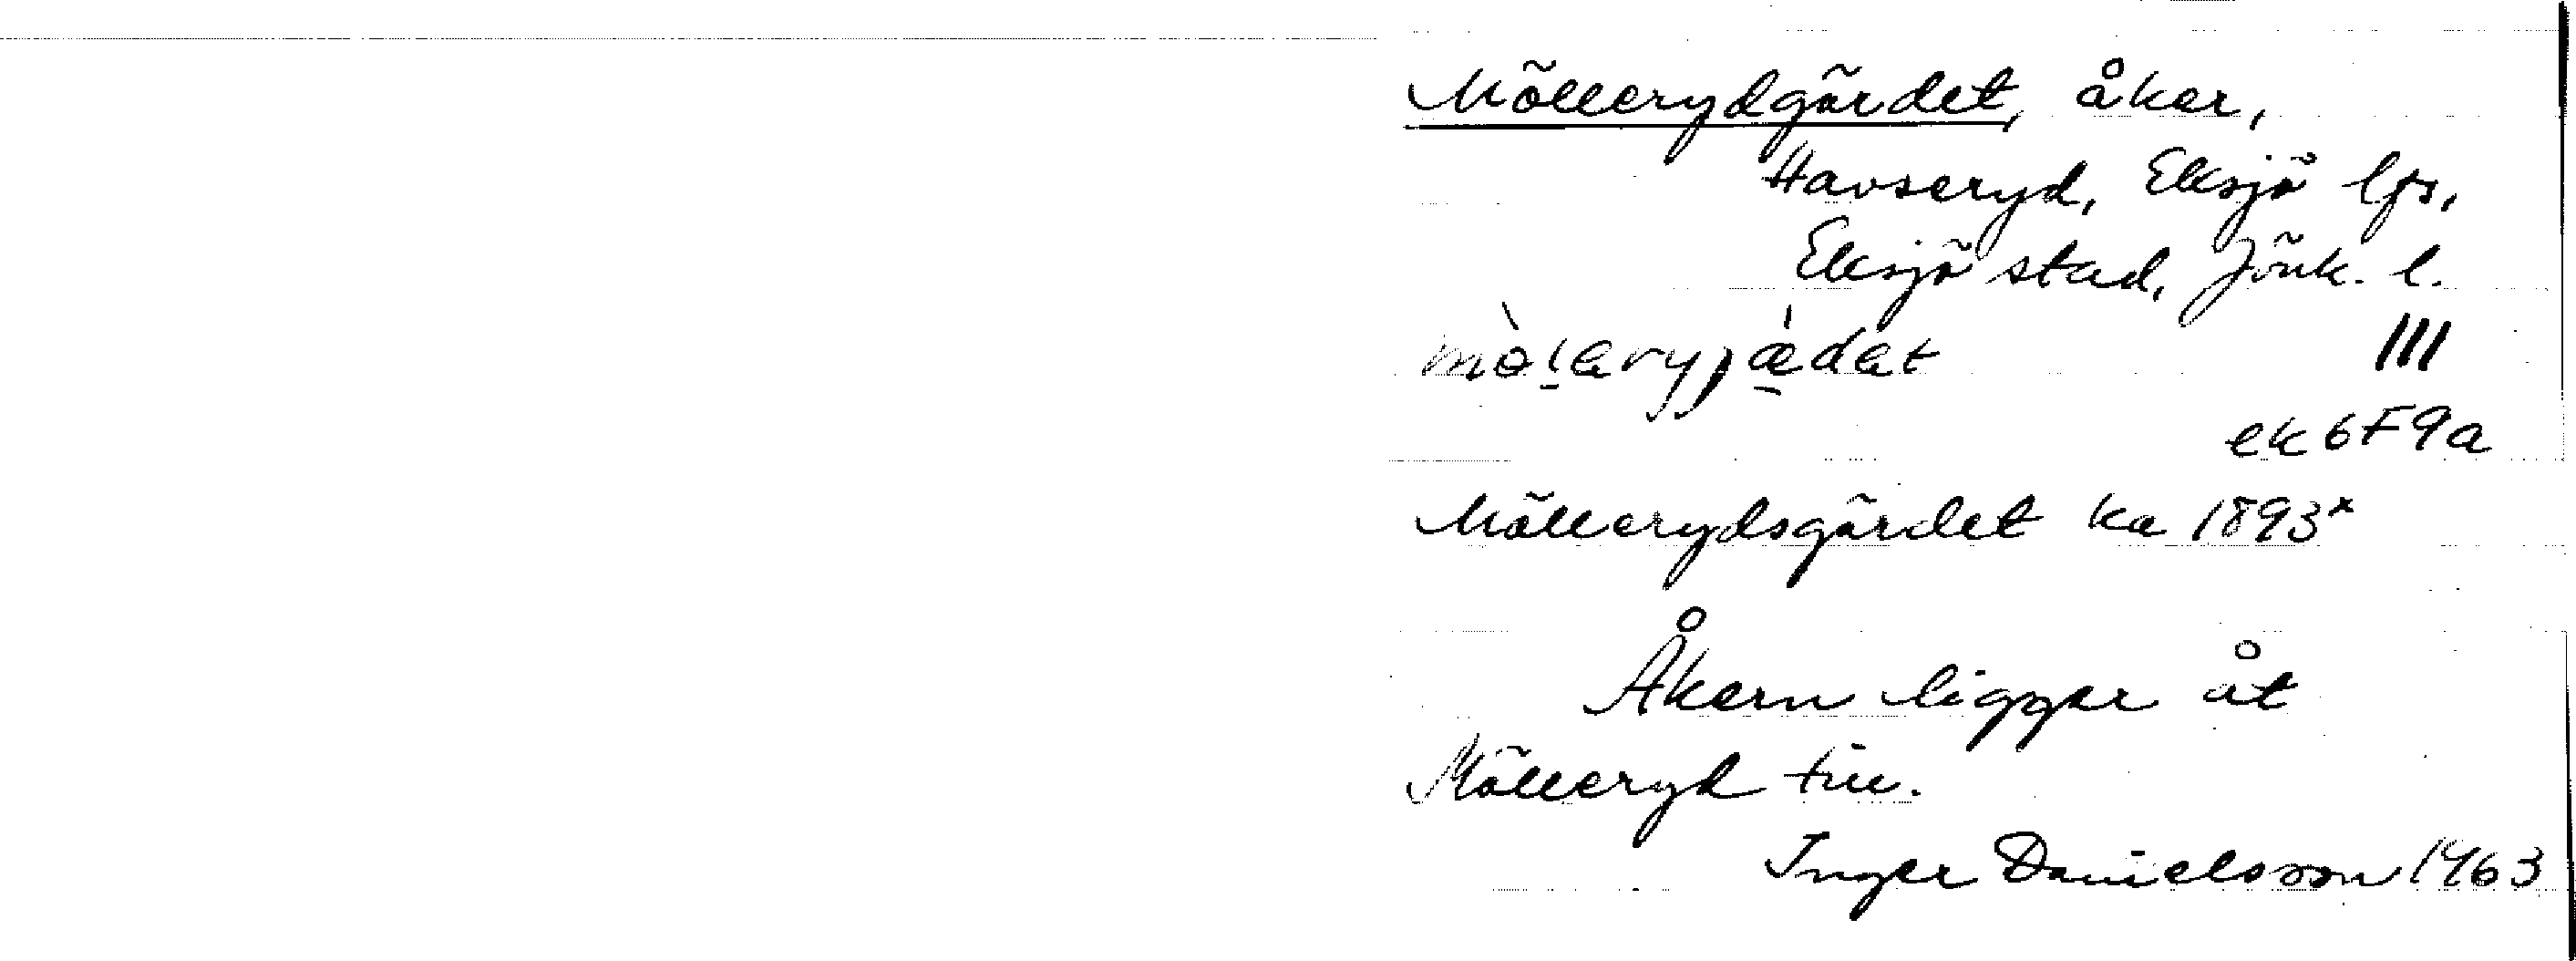 Möllerydgärdet, åker,
Havseryd, Eksjö lfs,
Eksjö stad, Jönk. l.
III
ek 6F9a
Möllerydsgärdet ka 1893×
Åkern ligger åt
Mölleryd till.
Inger Danielsson 1963